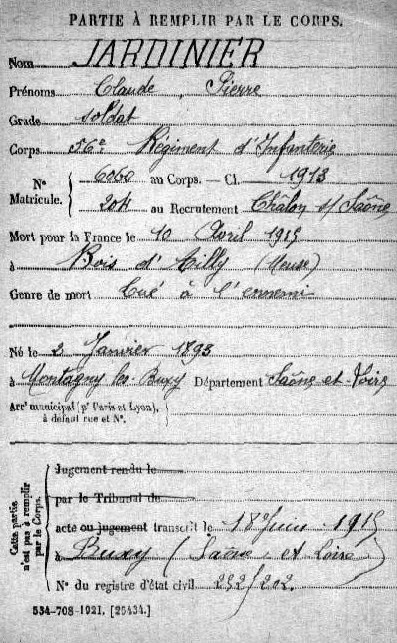 PARTIE À REMPLIR PAR LE CORPS.
Nom JARDINIER
Prénoms Claude, Pierre
Grade Soldat
Corps 56e Régiment d'Infanterie
N° Matricule. { 6060 au Corps. — Cl. 1913
204 au Recrutement Chalon s/ Saône
Mort pour la France le 10 Avril 1915
à Bois d'Ailly (Meuse)
Genre de mort Tué à l'ennemi
Né le 2 Janvier 1893
à Montagny les-Buxy Département Saône-et-Loire
Arrt municipal (pr Paris et Lyon), à défaut rue et N°. {
Cette partie n'est pas à remplir par le Corps. {
Jugement rendu le
par le Tribunal de
acte ou jugement transcrit le 18 Juin 1915
à Buxy (Saône et Loire)
N° du registre d'état civil 232/202.
534-708-1921. [25434.]